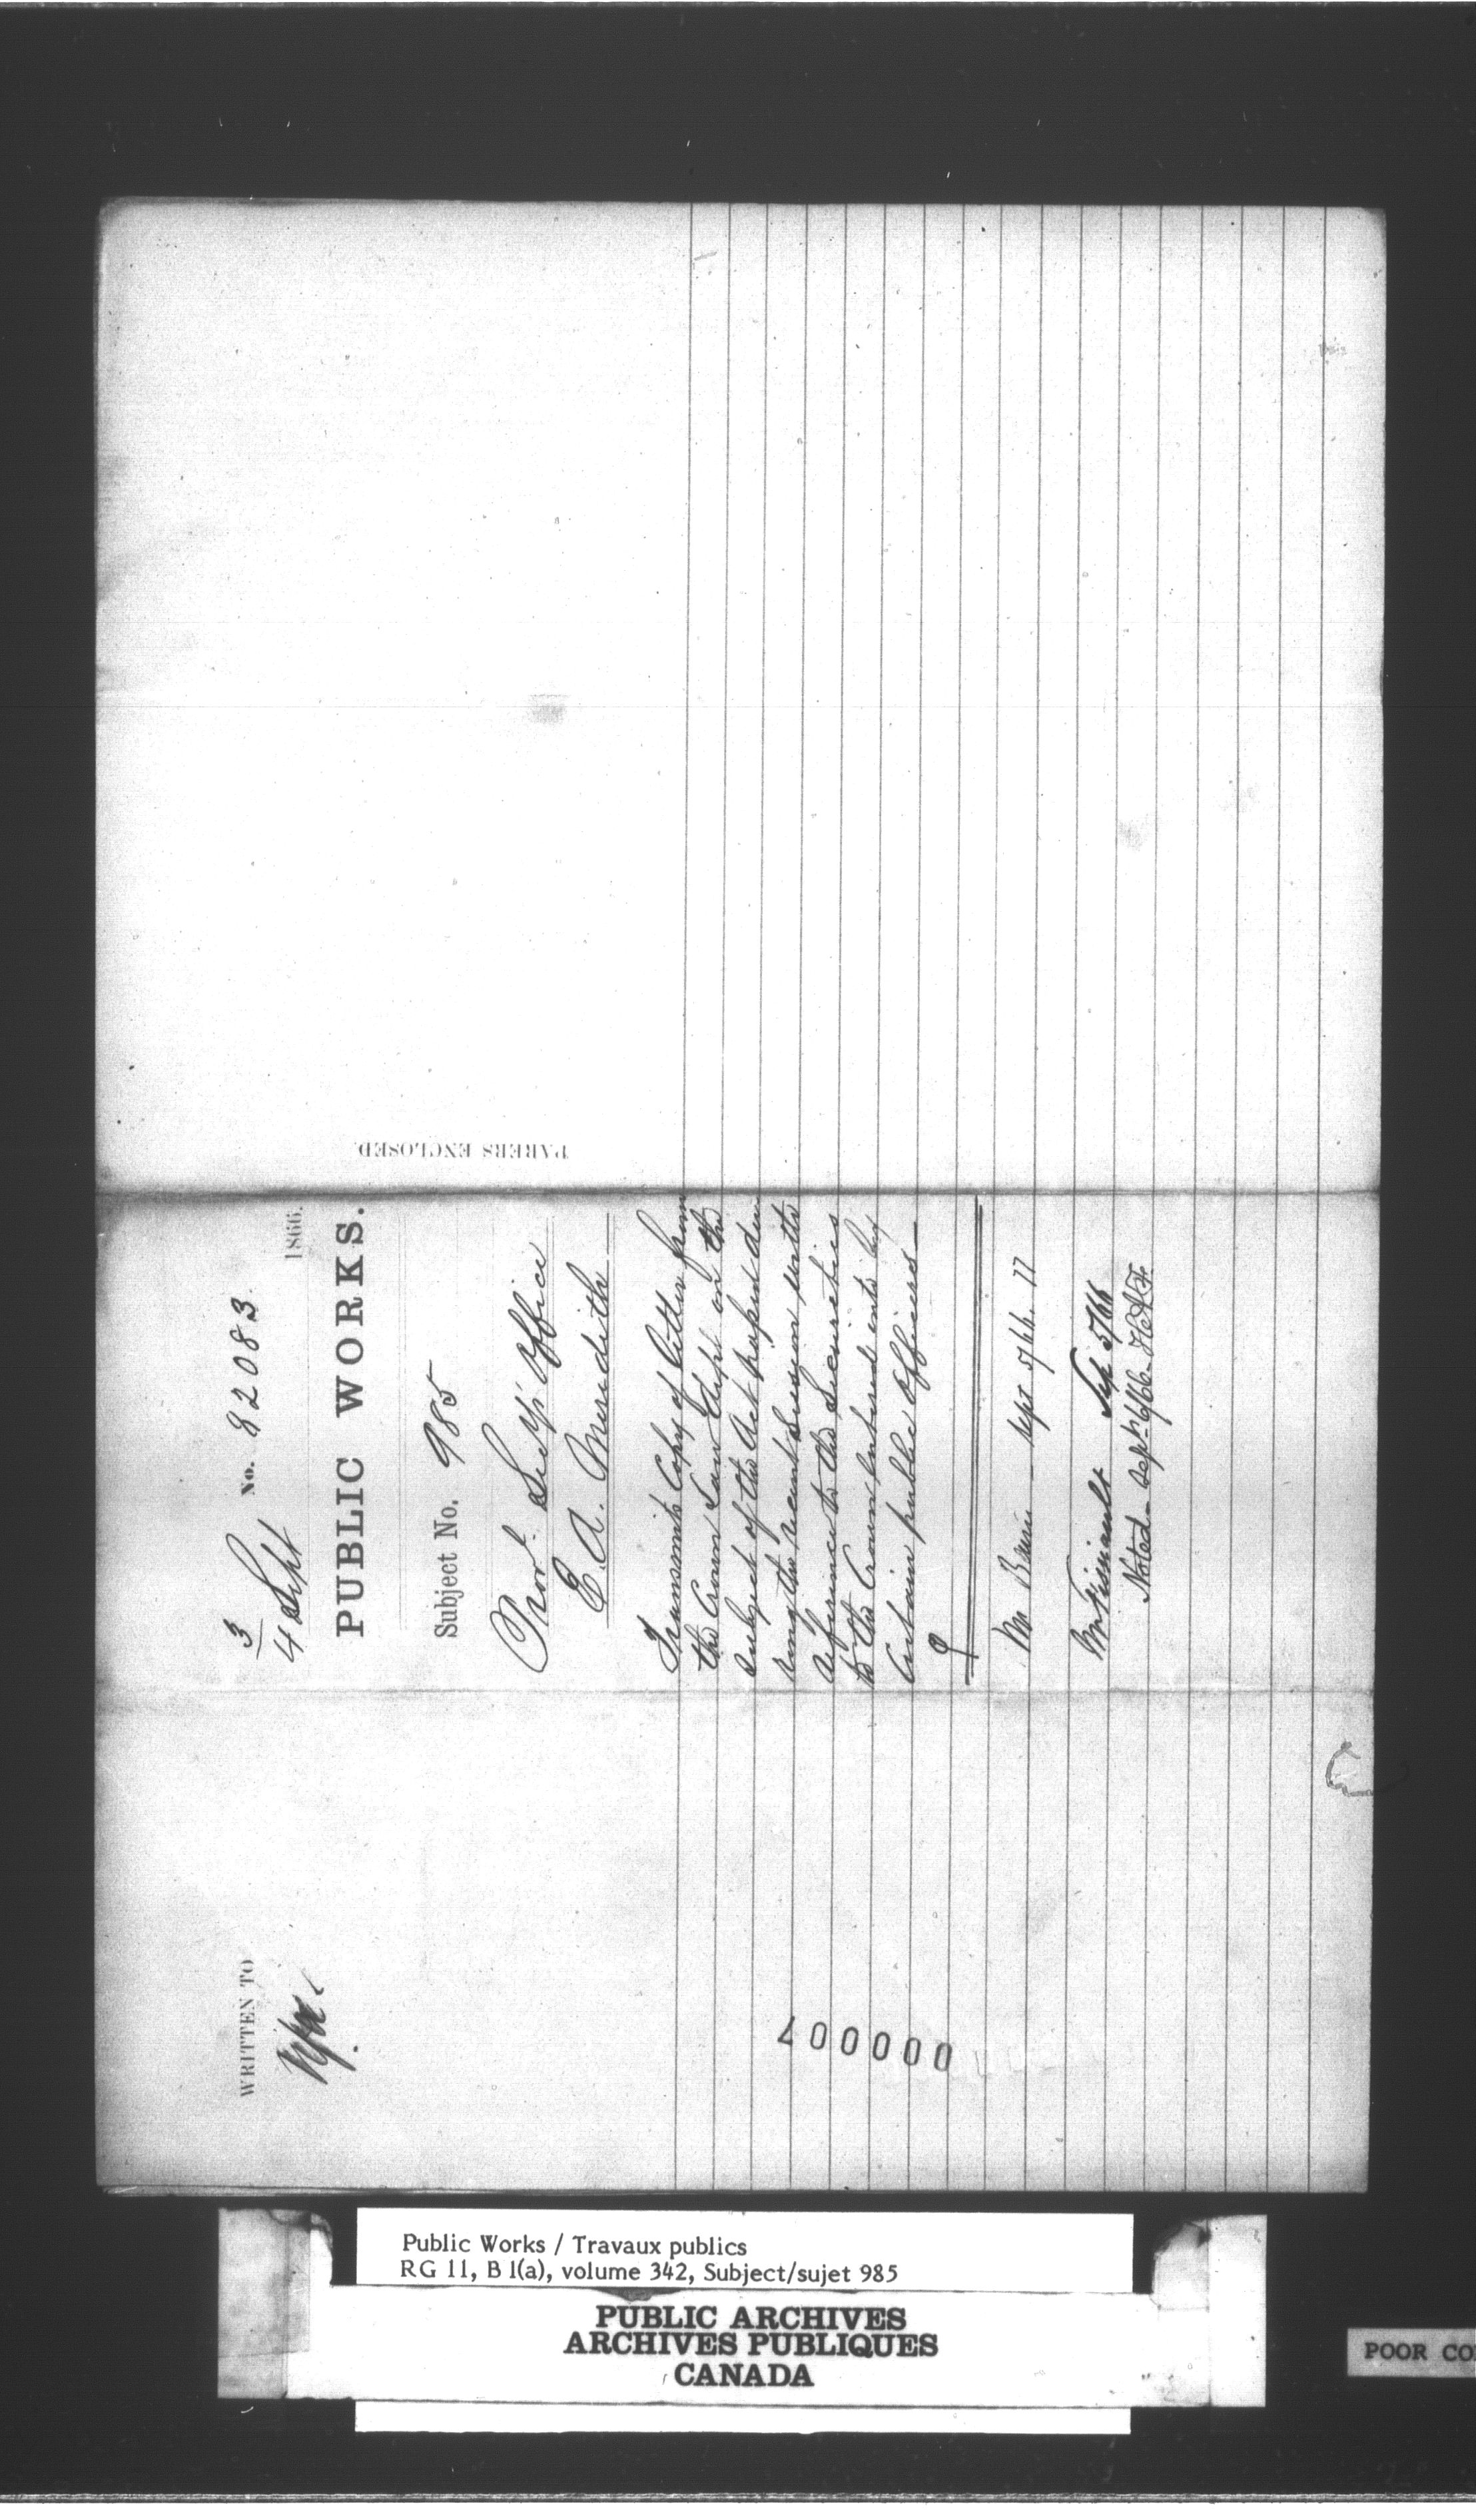 WRITTEN TO
3
4 Sept
No. 82083
1866.
PUBLIC WORKS.
Subject No. 985
Prov.l Sec'y's Office
E. A. Meredith
Transmits Copy of letter from
the Crown Law Dept on the
subject of the Act passed du
ring the recent Session with
reference to the Securities
to the Crown entered into by
Certain public Officers
Mr Braun - Sept 5/66.
Sep 5/66
Noted - Sept 6/66.
PAPERS ENCLOSED.
000007
Public Works / Travaux publics
RG 11, B 1(a), volume 342, Subject/sujet 985
PUBLIC ARCHIVES
ARCHIVES PUBLIQUES
CANADA
POOR CO